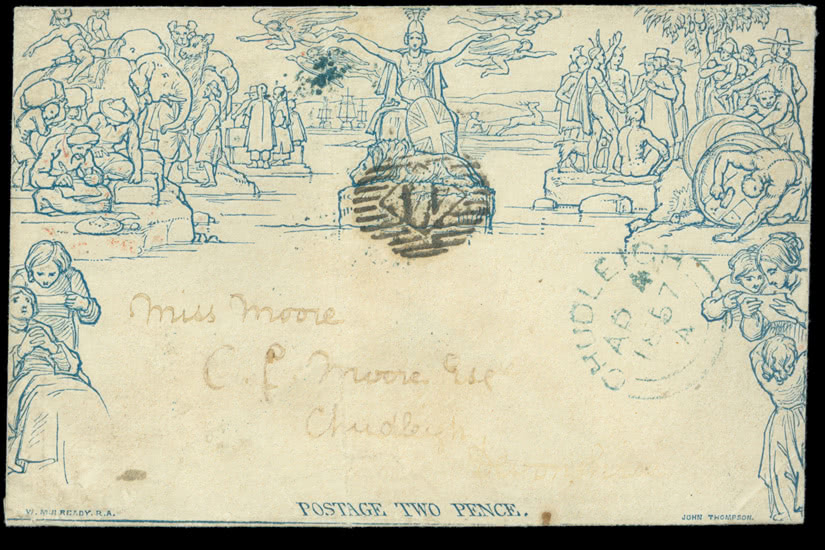 CHUDLEIGH
AP 4
1857
A
Miss Moore
C. P. Moore Esq
Chudleigh
POSTAGE TWO PENCE.
W. MULREADY. R.A.
JOHN THOMPSON.